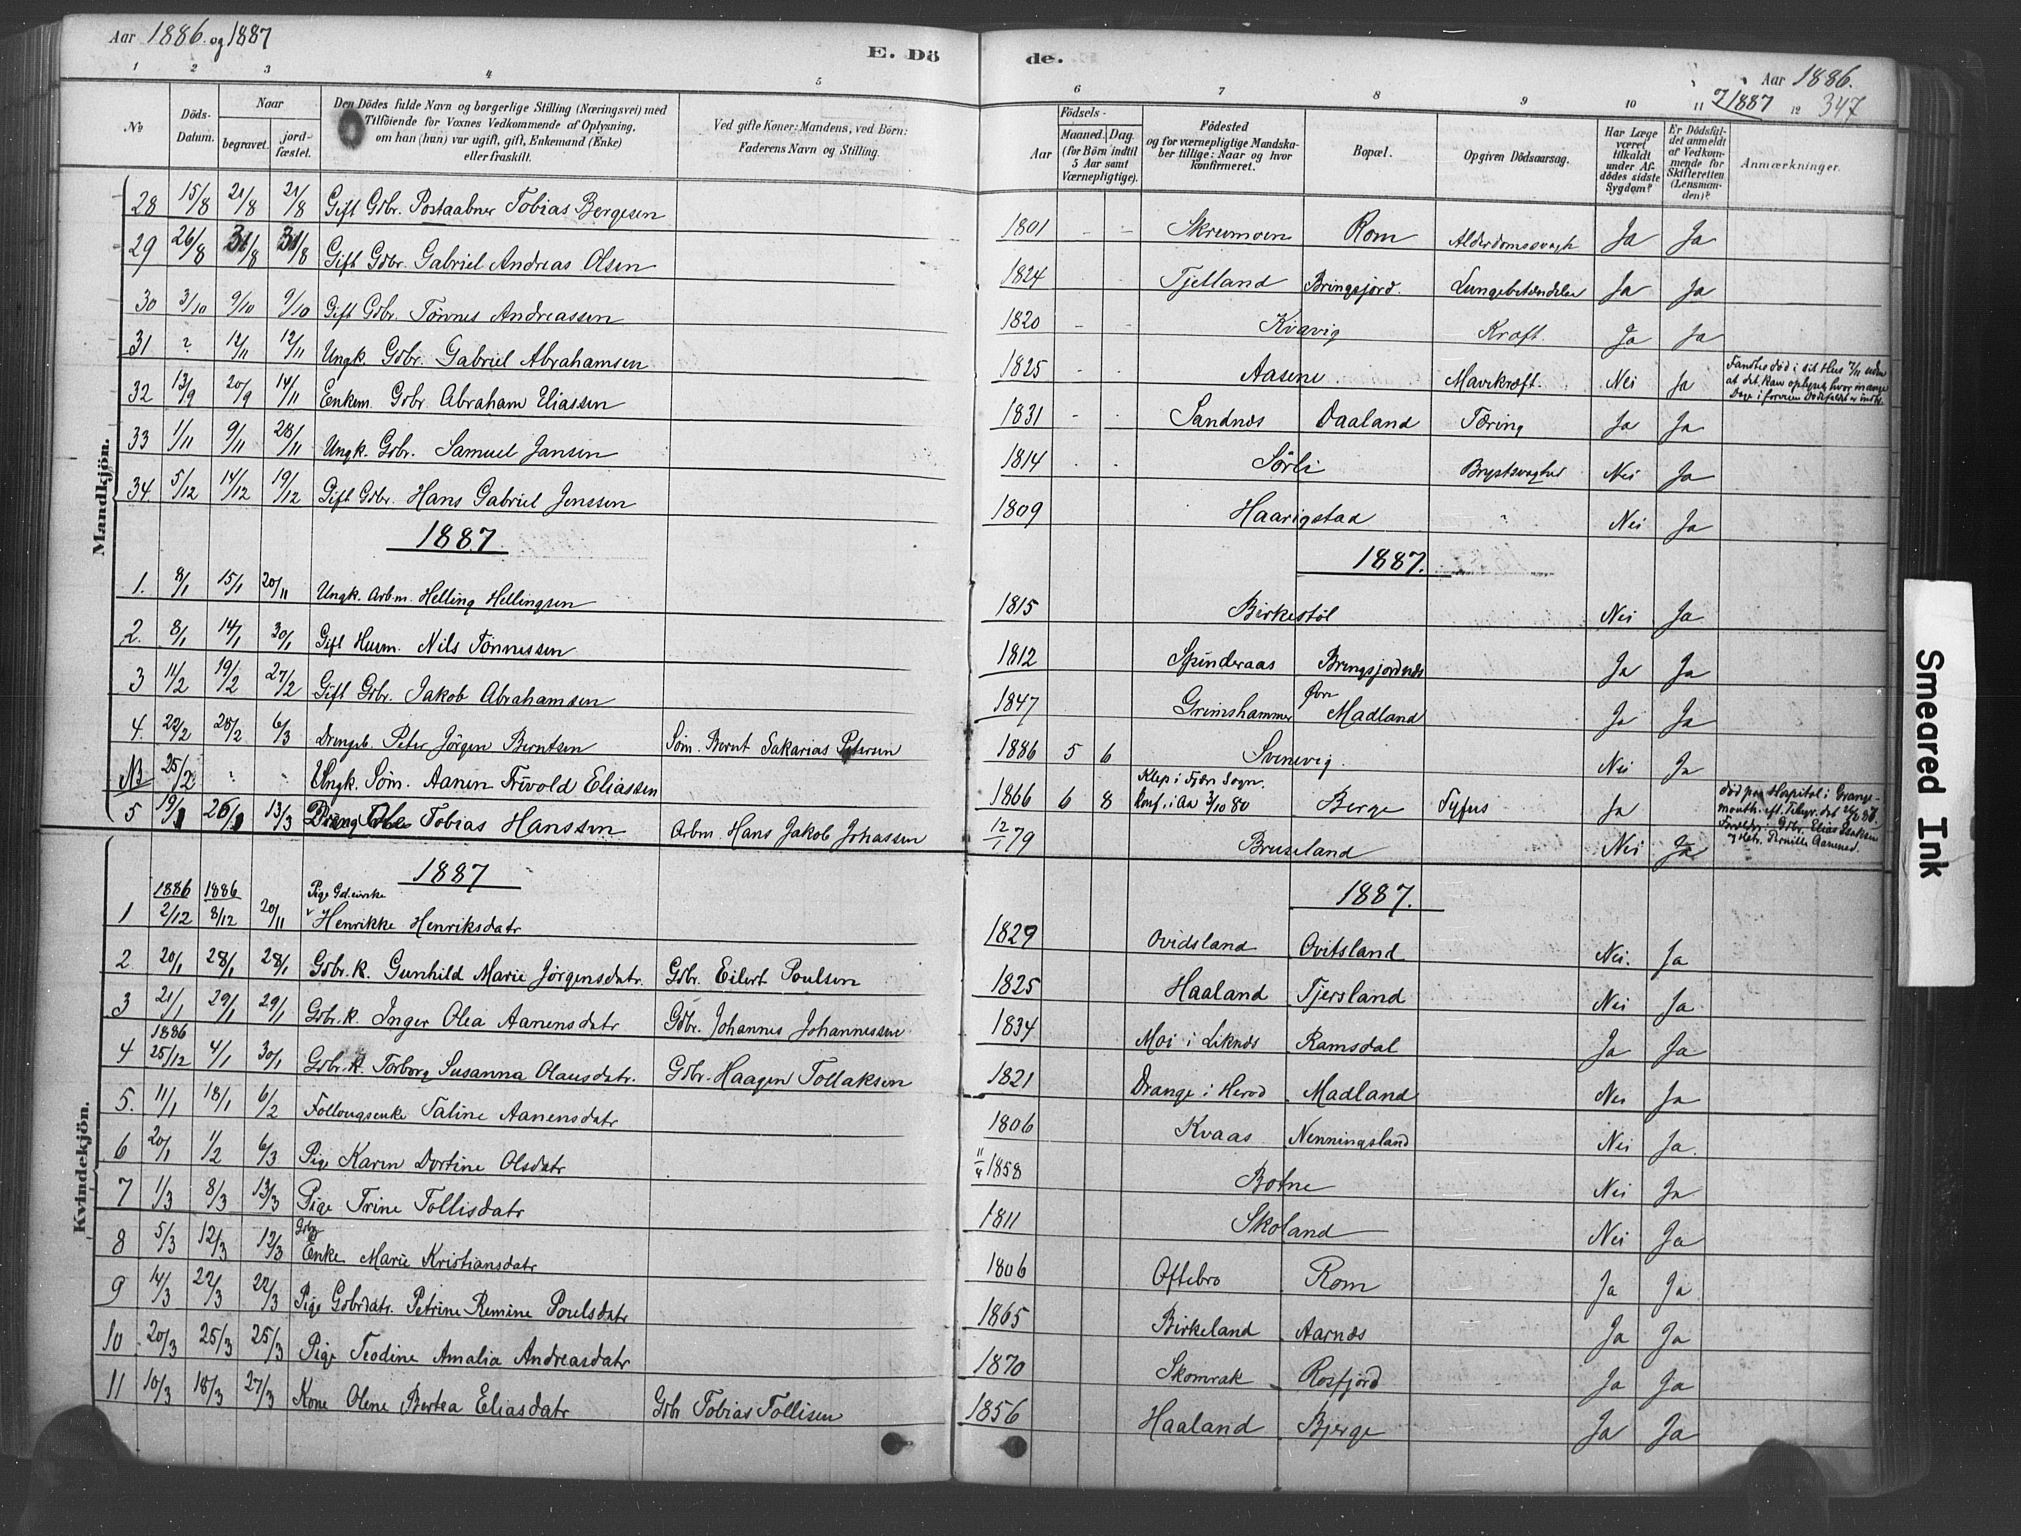 Aar 1886. og 1887
E. Dö
de.
Aar 1886.
og 1887 347
1 2 3 4 5
6 7 8 9 10 11 12
No
Döds-Datum.
Naar
begravet.
jord-fæstet.
Den Dödes fulde Navn og borgerlige Stilling (Næringsvei) med
Tilföiende for Voxnes Vedkommende af Oplysning,
om han (hun) var ugift, gift, Enkemand (Enke)
eller fraskilt.
Ved gifte Koner: Mandens, ved Börn:
Faderens Navn og Stilling.
Födsels-
Aar
Maaned. Dag.
(for Börn indtil
5 Aar samt
Værnepligtige).
Födested
og for værnepligtige Mandska-
ber tillige: Naar og hvor
konfirmeret.
Bopæl.
Opgiven Dödsaarsag.
Har Læge
været
tilkaldt
under Af-
dödes sidste
Sygdom?
Er Dödsfal-
det anmeldt
af Vedkom-
mende for
Skifteretten
(Lensman-
den)?
Anmærkninger.
Mandkjön.
28 15/8 21/8 21/8 Gift Gdbr. Postaabner Tobias Bergesen 1801 - - Skreumoen Rom Alderdomssvagh Ja Ja
29 26/8 31/8 31/8 Gift Gdbr. Gabriel Andreas Olsen 1824 Tjelland Bringsjord. Lungebetændelse Ja Ja
30 3/10 9/10 9/10 Gift Gdbr. Tönnes Andreassen 1820 - - Kvavig Kræft. Ja Ja
31 ? 12/11 12/11 Ungk. Gdbr. Gabriel Abrahamsen 1825 - - Aasene. Mavekræft. Nei Ja Fandtes död i sit Hus 7/11 uden
at det kan oplyses hvor mange
Dage i forveien Dödsfaldet er
32 13/9 20/9 14/11 Enkem. Gdbr. Abraham Eliassen 1831 - - Sandnes Daaland Tæring Ja Ja
33 1/11 9/11 28/11 Ungk. Gdbr. Samuel Jansen 1814 - - Sörli Brystsvaghed Nei Ja
34 5/12 14/12 19/12 Gift Gdbr. Hans Gabriel Jenssen 1809 Haarigstad " Nei Ja
1887. 1887.
1. 8/1 15/1 20/11 Ungk. Arbm. Helling Hellingsen 1815 Birkestöl Nei Ja
2. 8/1 14/1 30/1 Gift Husm. Nils Tönnessen 1812 Spinderaas Bringsjordnes Ja Ja
3 11/2 19/2 27/2 Gift Gdbr. Jakob Abrahamsen 1847 Grimshammer Övre Madland Ja Ja
4. 22/2 28/2 6/3 Drengeb. Peter Jörgen Berntsen Söm. Bernt Sakarias Petersen 1886 5 6 Svenevig. Nei Ja
NB 25/2 " " Ungk. Söm. Aanen Trivold Eliassen 1866 6 8 Klep i Fjære Sogn.
Konf. i Aa 3/10 80 Berge Tyfus Ja död paa Hospital i Grange-
mouth eft. Telegr.
Forældr. Gdbr. Elias Isaksen
og Hstr. Pernille Aanensd.
5 19/ 26/ 13/3 Dreng Tobias Hanssen Arbm. Hans Jakob Johassen 12/1 79 Bruseland Nei Ja
Kvindekjön.
1887 1887.
1 1886 2/12 1886 8/12 20/11 Pige Henrikke Henriksdatr 1829 Ovidsland Ovitsland Nei. Ja
2 20/1 28/1 28/1 Gdbr. K. Gunhild Marie Jörgensdatr. Gdbr. Eilert Poulsen 1825 Haaland Tjersland Nei Ja.
3 21/1 29/1 29/1 Gdbr. K. Inger Olea Aanensdatr Gdbr. Johannes Johannessen 1834 Moi i Liknes Ramsdal Ja Ja
4 1886 25/12 4/1 30/1 Gdbr. K. Torborg Susanna Olausdatr. Gdbr. Haagen Tollaksen 1821 Drange i Herod Madland Nei Ja
5. 11/1 18/1 6/2 Follougsenke Taline Aanensdatr 1806 Kvaas Nenningsland Nei Ja.
6 20/1 1/2 6/3 Pige Karen Dortine Olsdatr 11/4 1858 Botne Nei Ja
7 1/3 8/3 13/3 Pige Trine Tollisdatr 1811 Skoland Nei Ja
8 5/3 12/3 12/3 Gdbr Enke Marie Kristiansdatr 1806 Oftebro Rom Ja Ja.
9 14/3 22/3 22/3 Pige Gdbrdatr. Petrine Remine Poulsdatr 1865 Birkeland Aarnes Ja Ja
10 20/3 25/3 25/3 Pige Teodine Amalia Andreasdatr 1870 Skomrak Rosfjord Ja Ja
11 10/3 18/3 27/3 Kone Olene Bertea Eliasdatr Gdbr Tobias Tollisen 1856 Haaland Bjerge Ja Ja
Smeared Ink